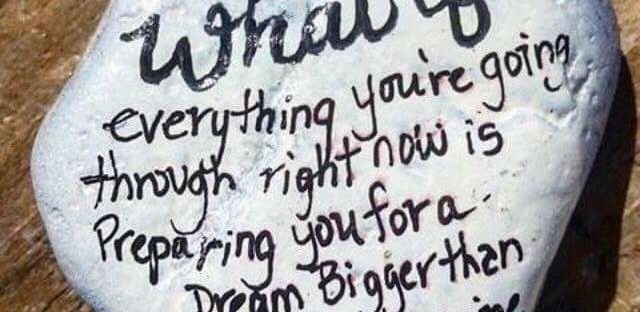 What if
everything you're going
through right now is
Preparing you for a
Dream Bigger than